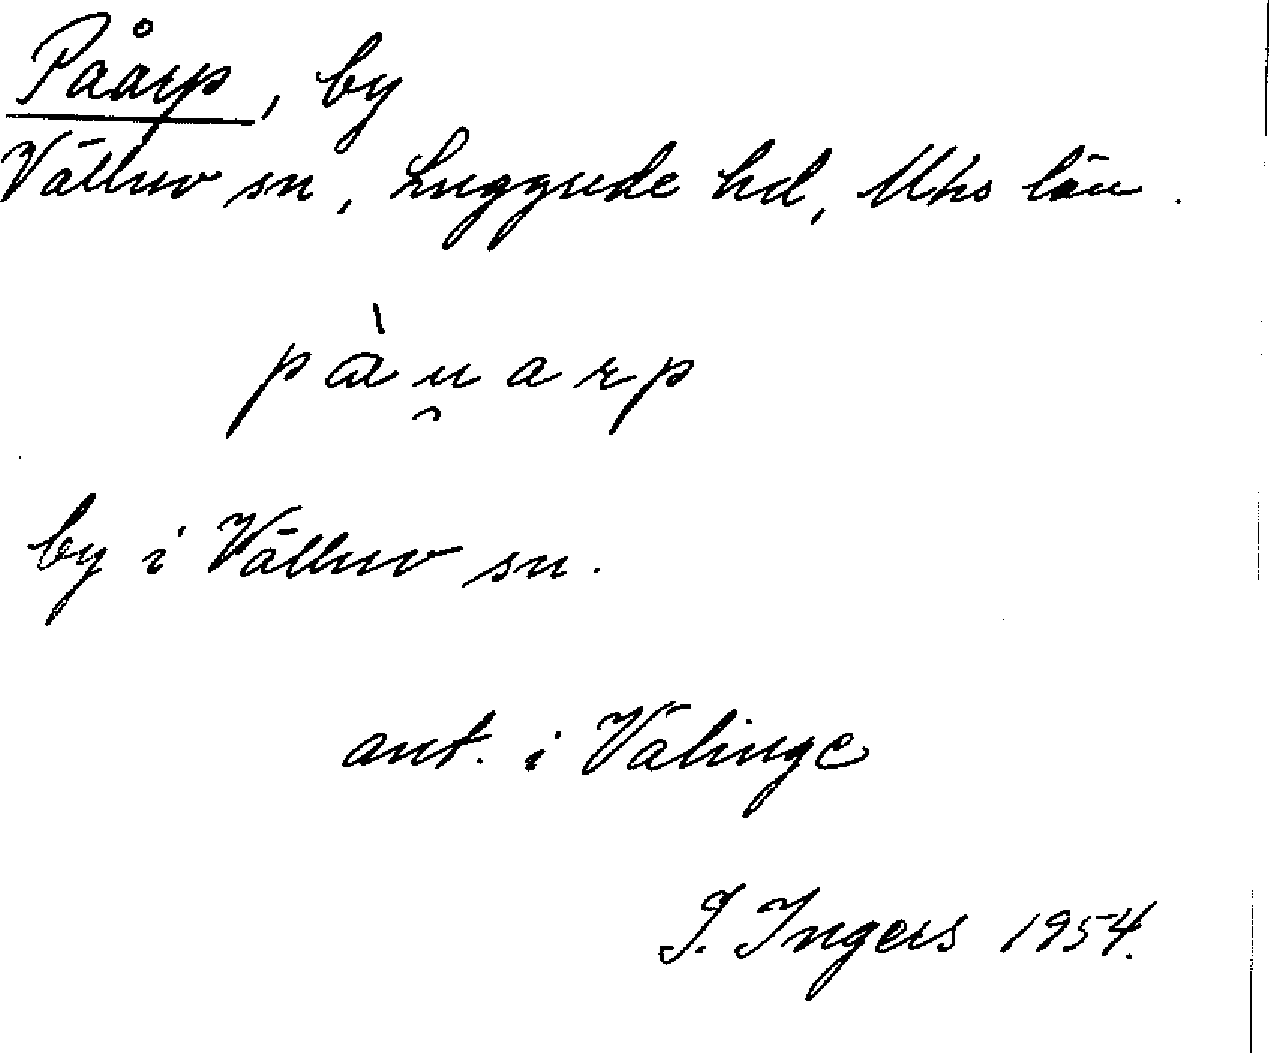 Påarp, by
Välluv sn, Luggude hd, Mhs län.
pàu̯arp
by i Välluv sn.
ant. i Välinge
I. Ingers 1954.